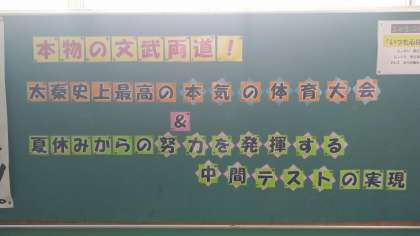 本物の文武両道！
太秦史上最高の本気の体育大会
&
夏休みからの努力を発揮する
中間テストの実現